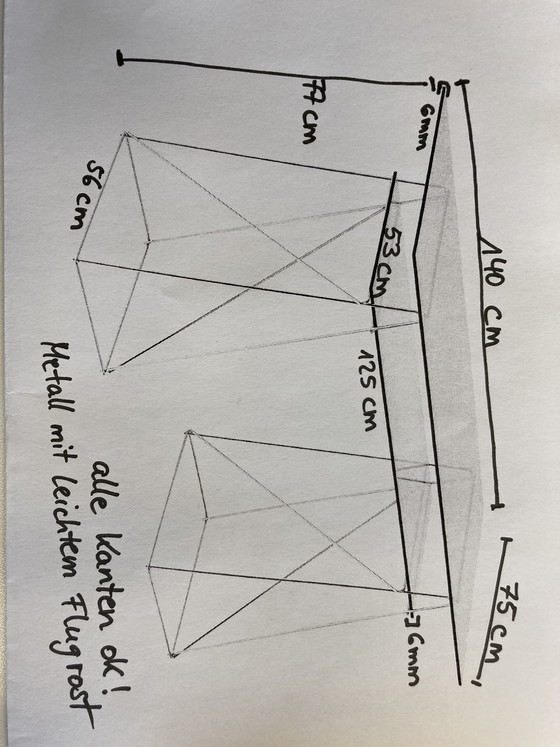 77 cm
6mm
140 cm
56 cm
53 cm
125 cm
75 cm
6mm
alle Kanten ok!
Metall mit leichtem Flugrost